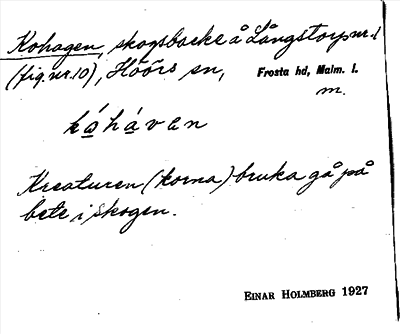 Kohagen, skogsbacke å Långstorp nr. 1
(fig. nr. 10), Höörs sn, Frosta hd, Malm. l.
m.
kóháven
Kreaturen (korna) bruka gå på
bete i skogen.
EINAR HOLMBERG 1927